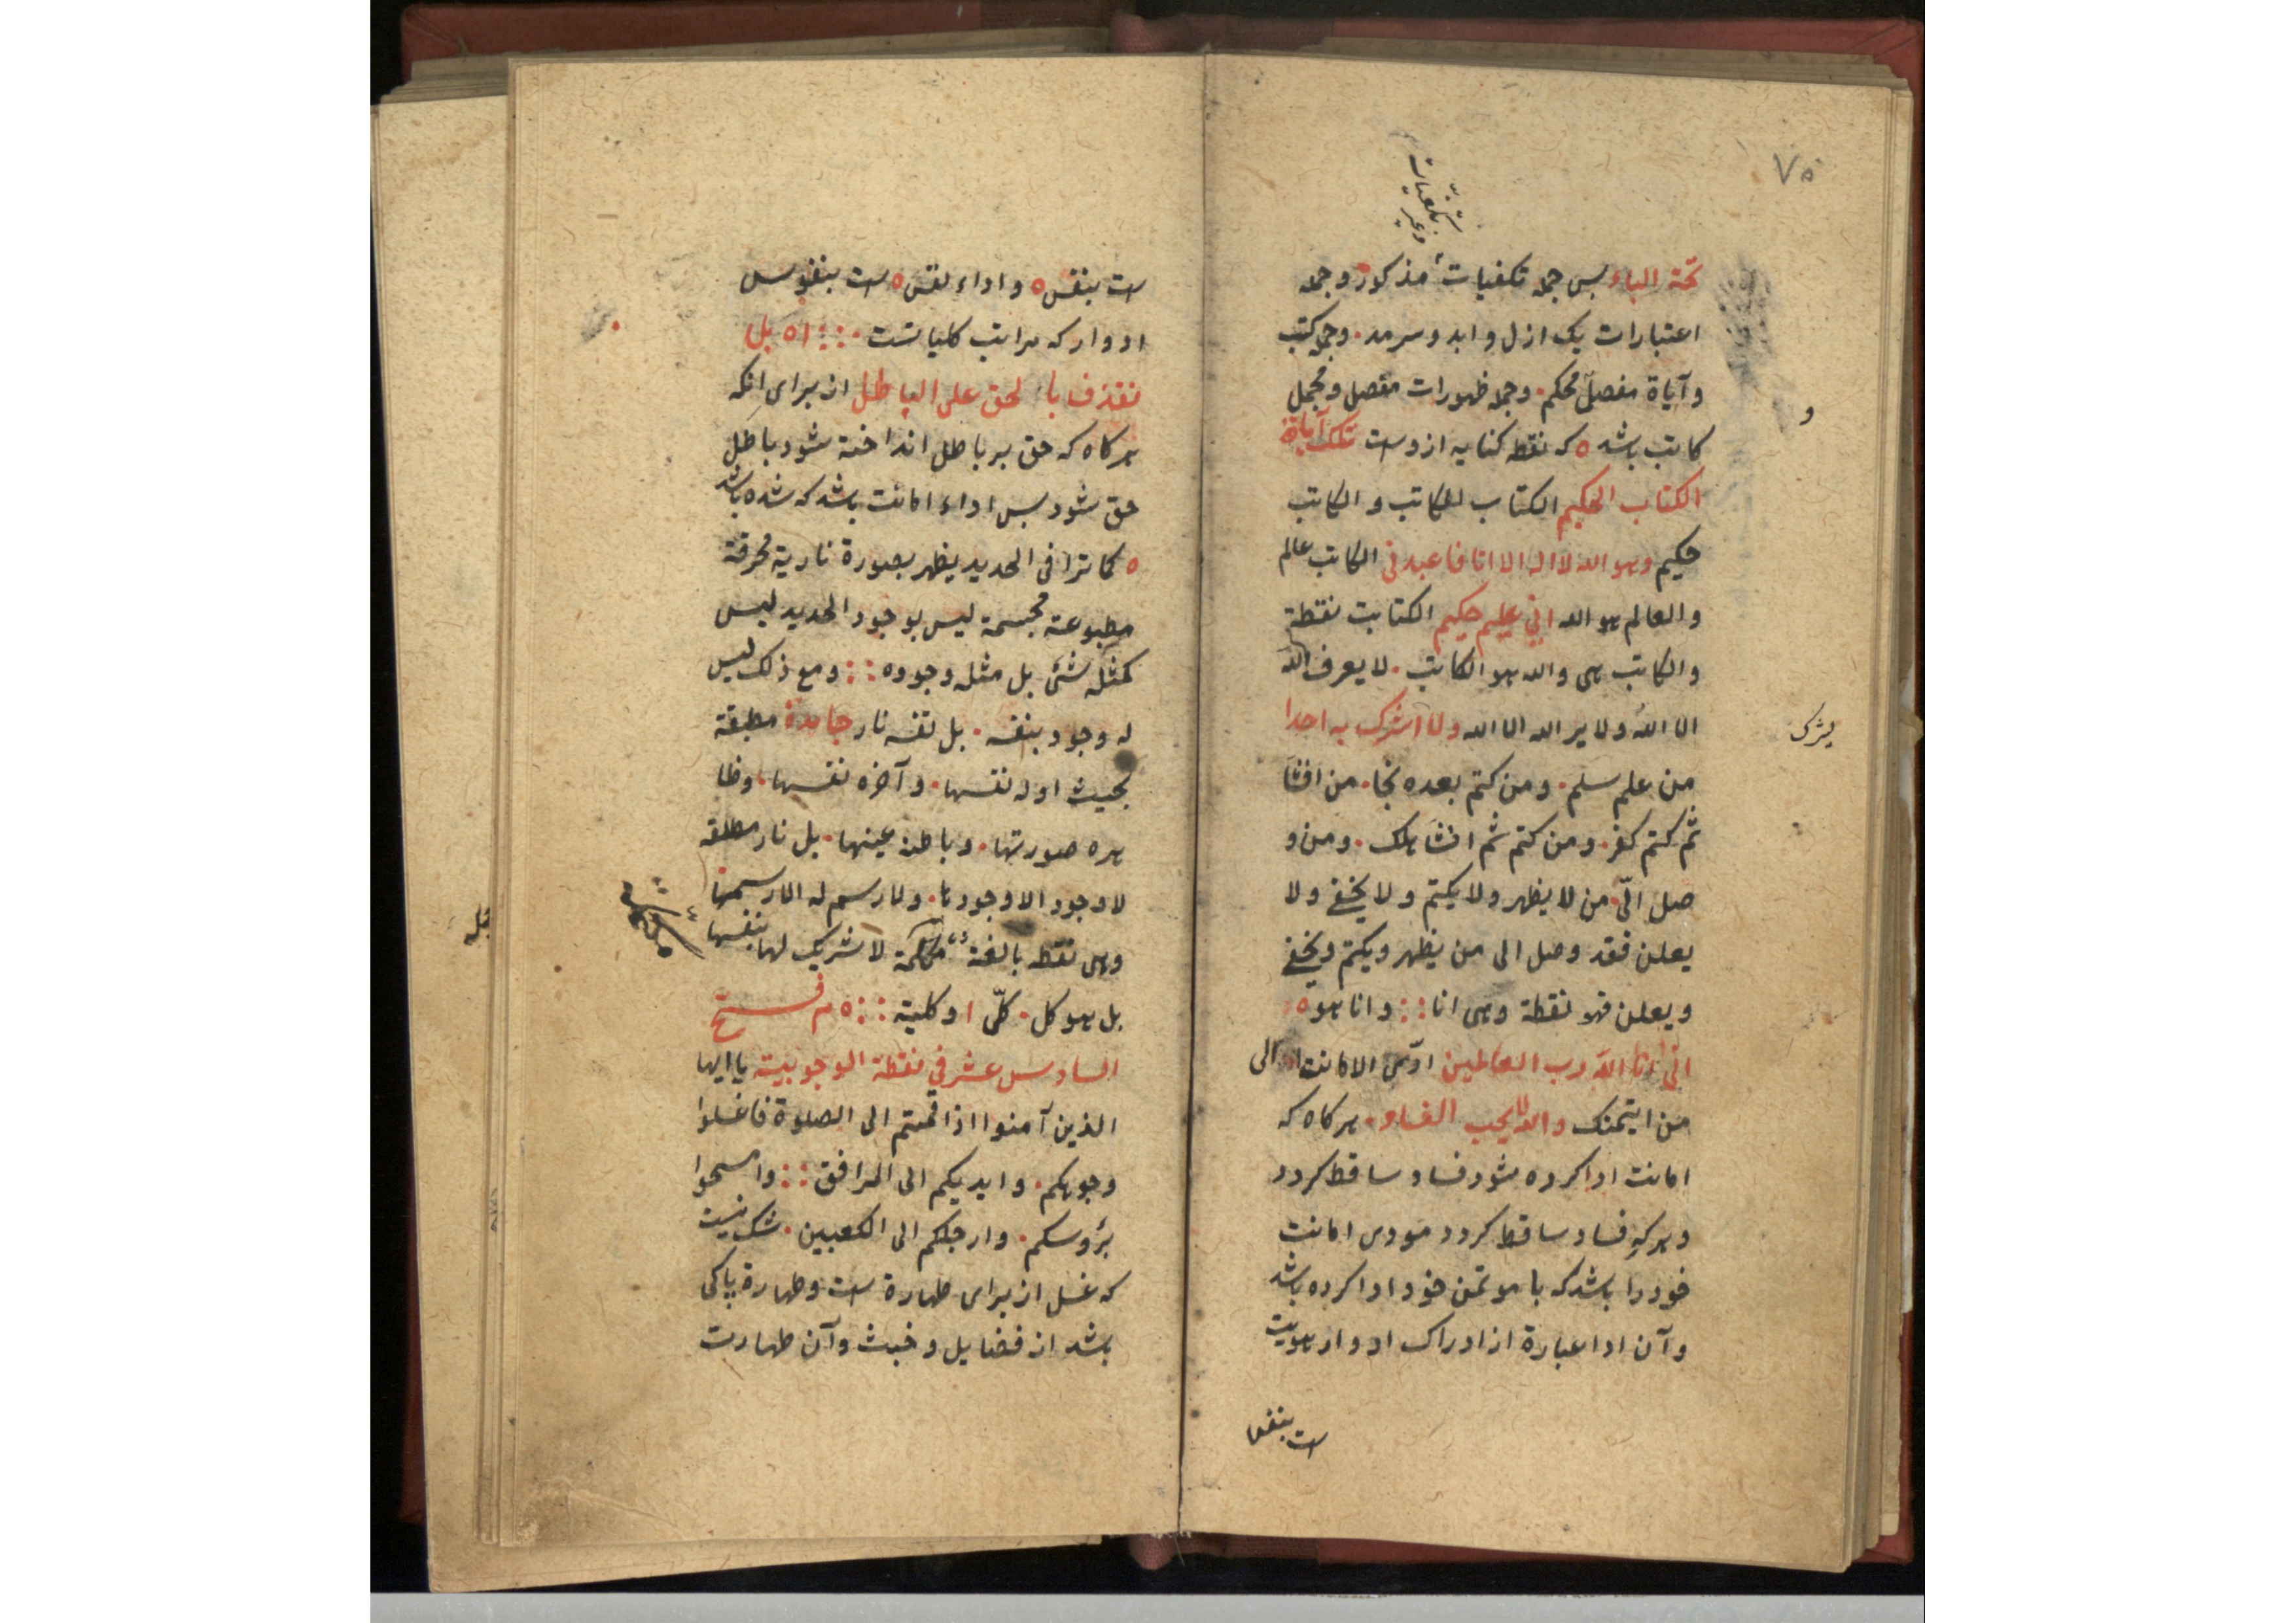 ٧٥
تحت الباء بس جمله تكفيات مذكور وجمله
اعتبارات يك ازل و ابد و سرمد . وجمله كتب
و آياة مفصل محكم . وجمله ظهورات مفصل و مجمل
كاتب باشد ٥ كه نقطه كنايه ازوست تلك آياة
الكتاب الحكيم الكتاب الكاتب و الكاتب
حكيم وهو الله لا اله الا انا فاعبدنى الكاتب عالم
والعالم هو الله انى عليم حكيم الكتابت نقطة
والكاتب هى والله هو الكاتب . لا يعرف الله
الا الله ولا ير الله الا الله ولا اشرك به احدا
يشرك
من علم سلم . ومن كتم بعده نجا . من افشا
ثم كتم كفر . ومن كتم ثم افشا هلك . ومن و
صل الى من لا يظهر ولا يكتم ولا يخفى ولا
يعلن فقد وصل الى من يظهر ويكتم ويخفى
ويعلن فهو نقطة وهى انا :: وانا هو ٥
انى انا الله رب العالمين ادّى الامانت الى
من ايتمنك والله لا يحب الفساد . هركاه كه
امانت ادا كرده شود فساد ساقط كردد
و هركه فساد ساقط كردد مودى امانت
خود را باشد كه با موتمن خود ادا كرده باشد
و آن ادا عبارة از ادراك ادوار هويت
ست بنفس
ست بنفس ٥ و اداء نفس ٥ ست بنفوس
ادوار كه مراتب كلياتست .::: ٥١ بل
نقذف بالحق على الباطل از براى انكه
هركاه كه حق بر باطل انداخته شود باطل
حق شود بس اداء امانت باشد كه شده باشد
٥ كما ترا فى الحديد يظهر بصورة نارية محرقة
مطبوعة مجسمة ليس بوجود الحديد ليس
كمثله شئ بل مثله وجوده :: ومع ذلك ليس
له وجود بنفسه . بل نفسه نار جامدة مطبقة
بحيث اوله نفسها . و آخره نفسها . وظا
هره صورتها . وباطنه عينها . بل نار مطلقه
لا وجود الا وجودها . ولا رسم له الا رسمها
وهى نقطه بالغة لا شريك لها بنفسها
بل هو كل . كلّى ا و كلية :: ٥ م فتح
السادس عشر فى نقطة الوجوبية يا ايها
الذين آمنوا اذا قمتم الى الصلوة فاغسلوا
وجوهكم . وايديكم الى المرافق :: وامسحوا
برؤسكم . وارجلكم الى الكعبين . شك نيست
كه غسل از براى طهارة ست وطهارة پاكى
باشد از فضايل و خبث و آن طهارت